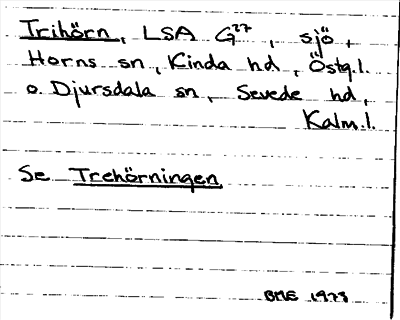 Trihörn, LSA G27, sjö,
Horns sn, Kinda hd, Östg.l.
o. Djursdala sn, Sevede hd,
Kalm.l.
Se Trehörningen
BME 1978